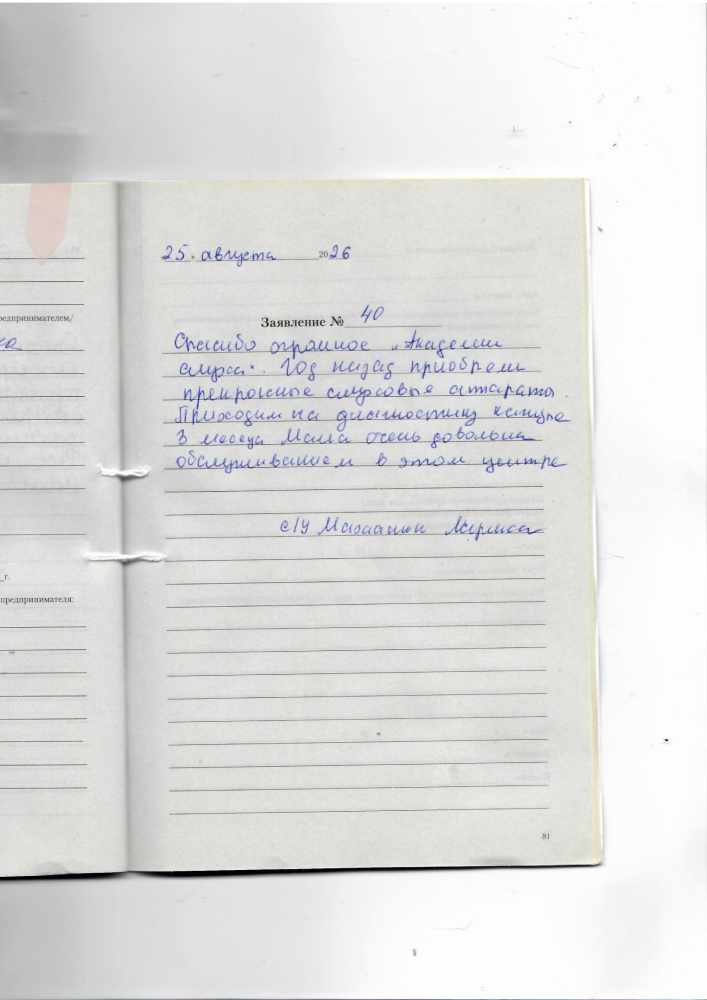 25. августа 2026
Заявление № 40
Спасибо огромное „Академии
слуха". Год назад приобрели
прекрасные слуховые аппараты.
Приходим на диагностику каждые
3 месяца Мама очень довольна
обслуживанием в этом центре
с/у Лариса
редпринимателем/
г.
предпринимателя:
81